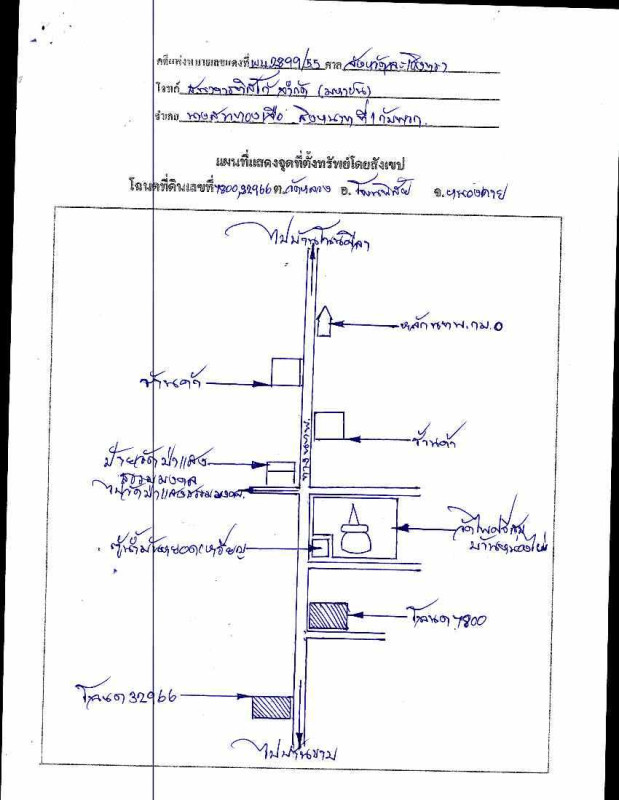 คดีแพ่งหมายเลขแดงที่ ผบ.2899/55 ศาล จังหวัดฉะเชิงเทรา
โจทก์ ธนาคารทิสโก้ จำกัด (มหาชน)
จำเลย
แผนที่แสดงจุดที่ตั้งทรัพย์โดยสังเขป
โฉนดที่ดินเลขที่ 4800,32966 ต.วัดหลวง อ.โพนพิสัย จ.หนองคาย
ไปบ้านโนนศิลา
หลักนพ.กม.0
ร้านค้า
ร้านค้า
ทาง นพ.
ป้ายวัดป่าแสง
ธรรมมงคล
ไปวัดป่าแสงธรรมมงคล
ตู้น้ำมันหยอดเหรียญ
วัดโพธิ์ศรี
โฉนด 4800
โฉนด 32966